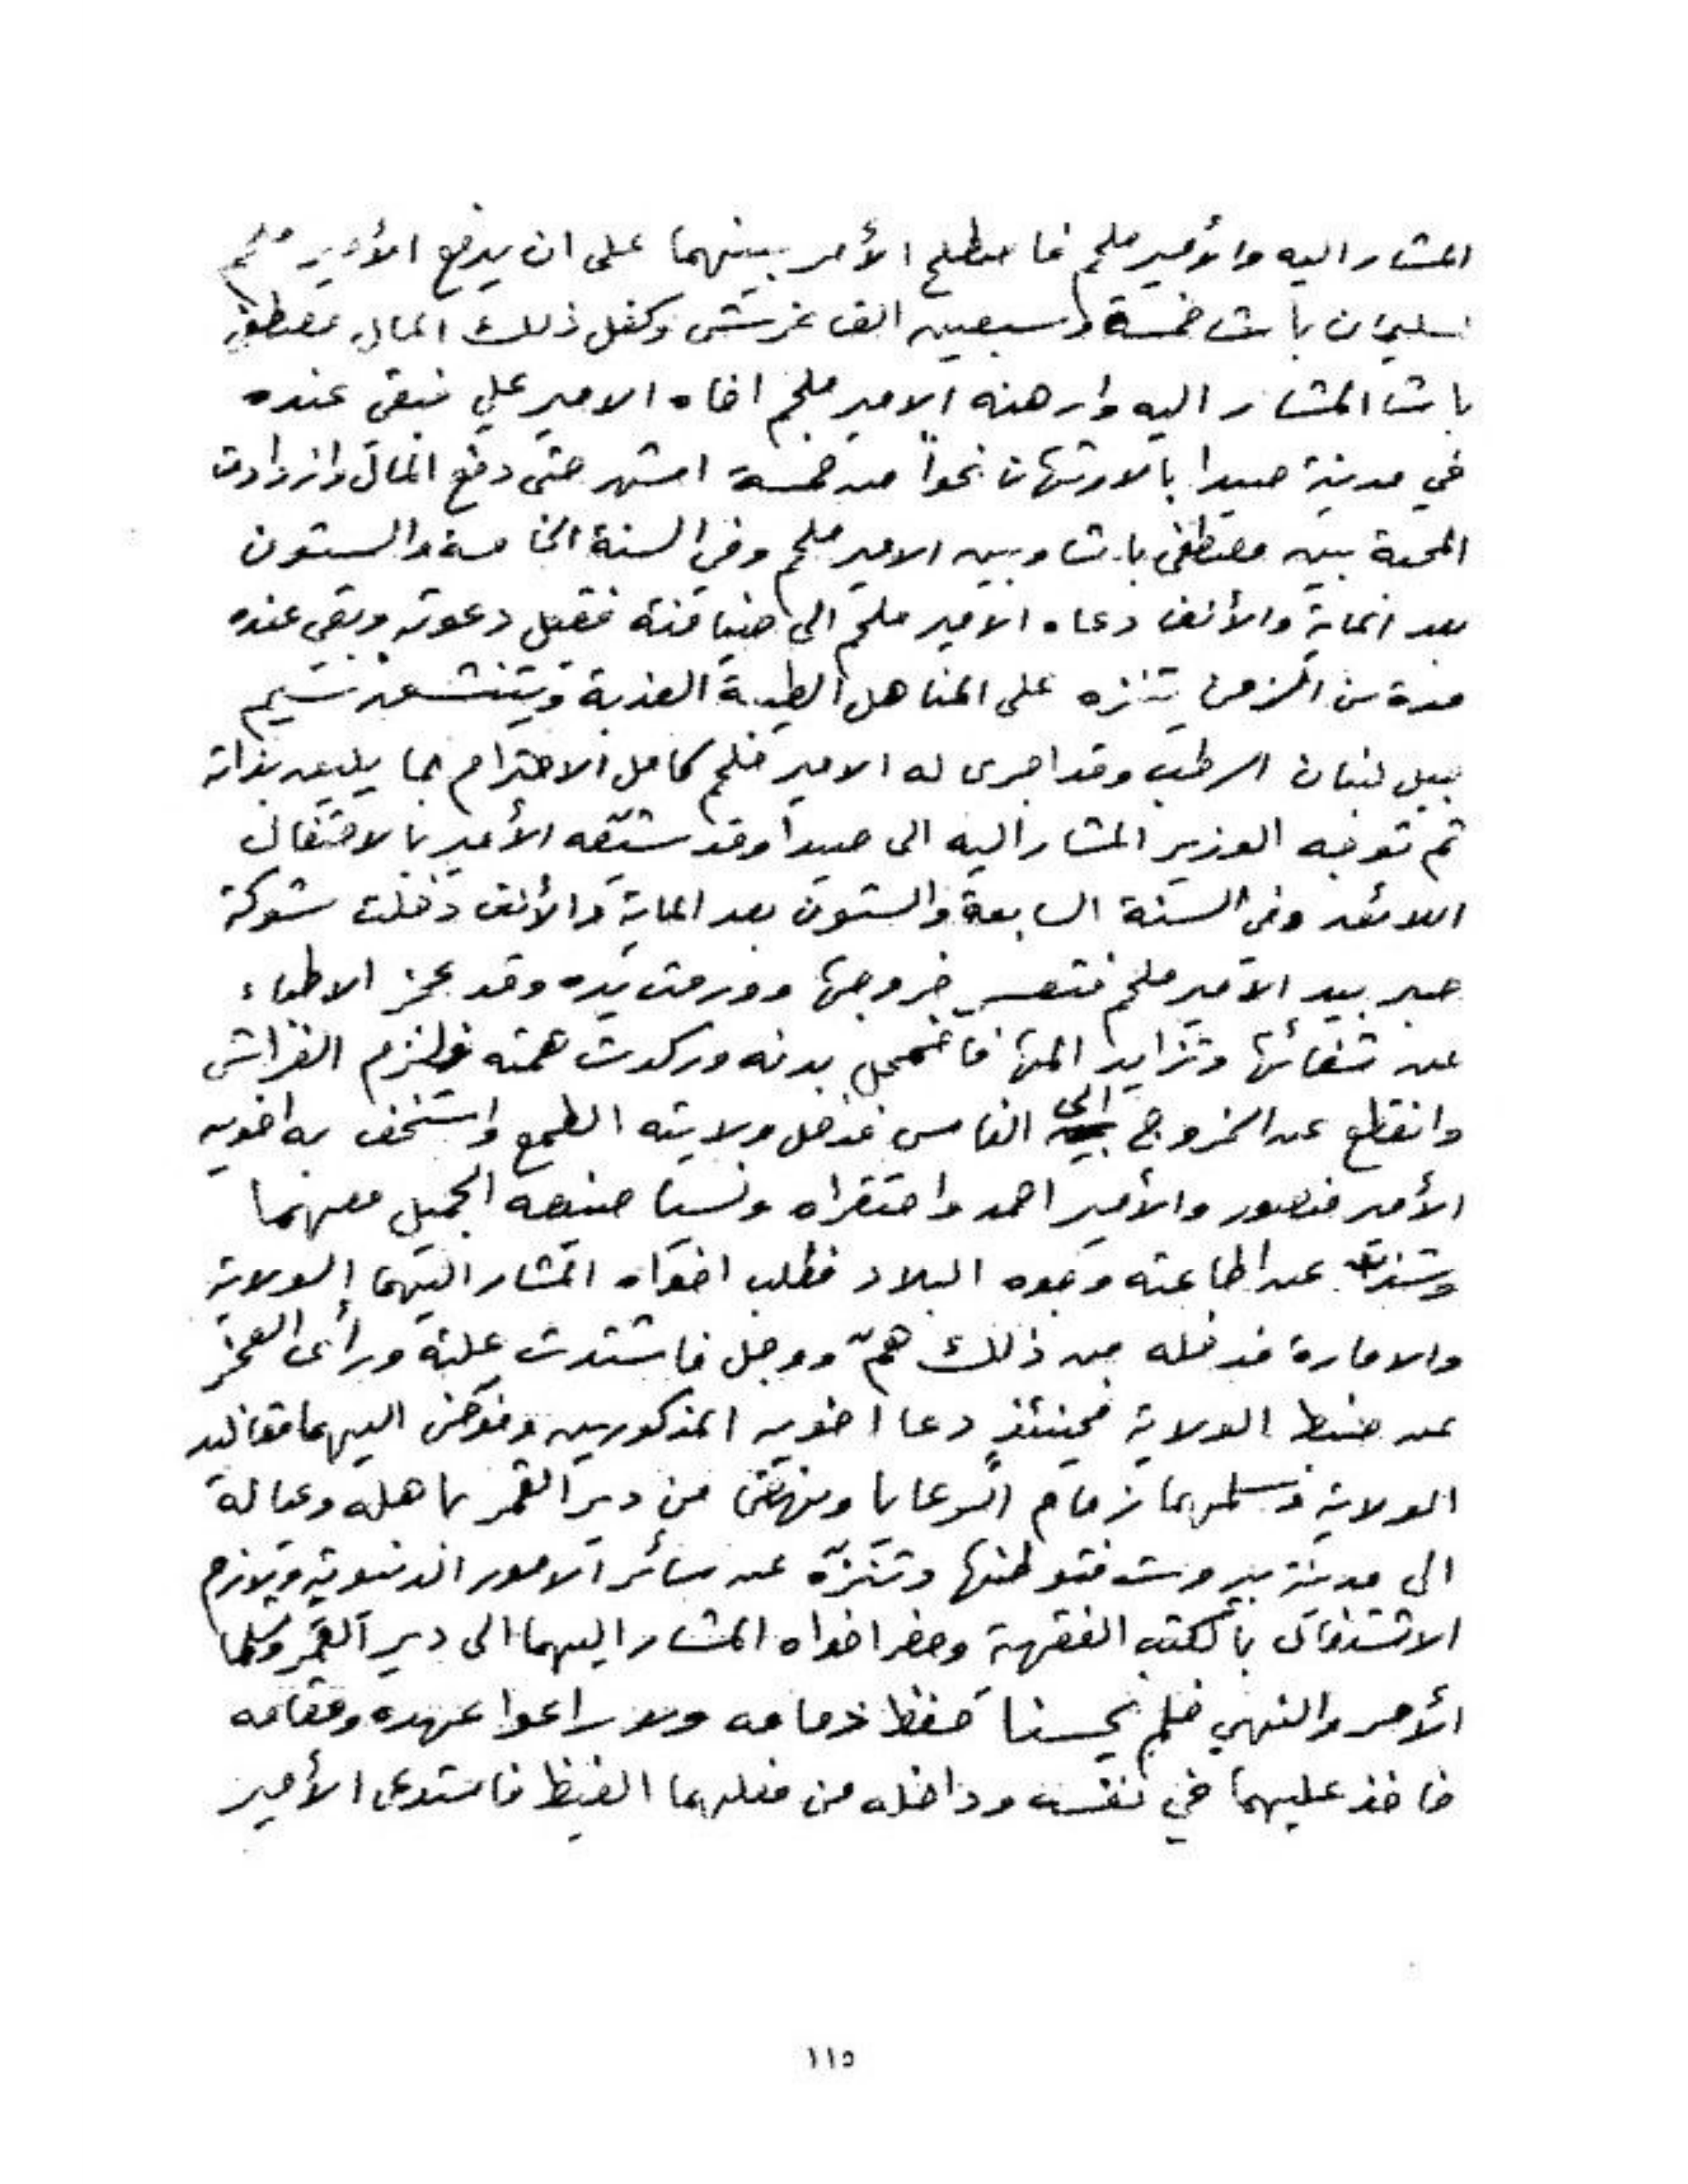 المشار اليه والأمير ملحم فاصطلح الأمر بينهما على ان يدفع الأمير ملحم
لسليمان باشا خمسة وسبعين الف غرش وكفل ذلك المال مصطفى
باشا المشار اليه وارهنه الامير ملحم اخاه الامير علي فبقى عنده
في مدينة صيدا بالارتهان نحواً من خمسة اشهر حتى دفع المال وازدادت
المحبة بين مصطفى باشا وبين الامير ملحم وفي السنة الخامسة والستون
بعد الماية والألف دعاه الامير ملحم الى ضيافته فقبل دعوته وبقي عنده
مدة من الزمن يتنزه على المناهل الطيبة العذبة ويتنشق نسيم
جبل لبنان الرطب وقد اجرى له الامير ملحم كامل الاحترام بما يليق بذاته
ثم توجه الوزير المشار اليه الى صيدا وقد شيّعه الأمير بالاحتفال
اللائق وفي السنة السابعة والستون بعد الماية والألف دخلت شوكة
صبر بيد الامير ملحم فتعسر خروجها وورمت يده وقد عجز الاطباء
عن شفائها وتزايد المها فاضمحل بدنه وركدت همته ولزم الفراش
وانقطع عن الخروج الى الناس فدخل ولايته الطمع واستخف به اخويه
الأمير منصور والأمير احمد واحتقراه ونسيا صنيعه الجميل معهما
عن اطاعته وجوه البلاد فطلب اخواه المشار اليهما الولاية
والامارة فدخله من ذلك همّ ووجل فاشتدت علته ورأى العجز
عن ضبط الولاية فحينئذٍ دعا اخويه المذكورين وفوّض اليهما مقاليد
الولاية وسلمهما زمام الرعايا ونهض من دير القمر باهله وعياله
الى مدينة بيروت فتوطنها وتنزّه عن سائر الامور الدنيوية ولازم
الاشتغال بالكتب الفقهية وحضر اخواه المشار اليهما الى دير القمر وتسلما
الأمر والنهي فلم يحسنا حفظ ذمامه ولا راعوا عهده ومقامه
فاخذ عليهما في نفسه وداخله من فعلهما الغيظ فاستدعى الأمير
١١٥